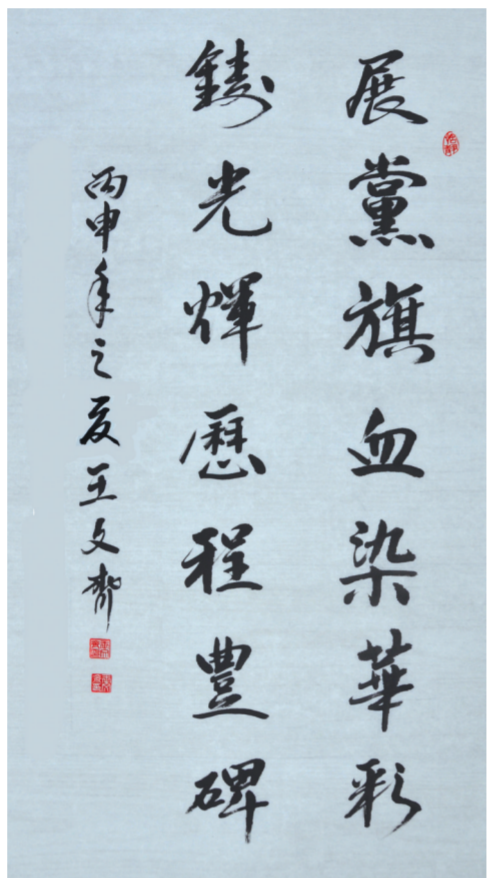 展黨旗血染華彩
鑄光輝歷程豐碑
丙申年之夏王文齋